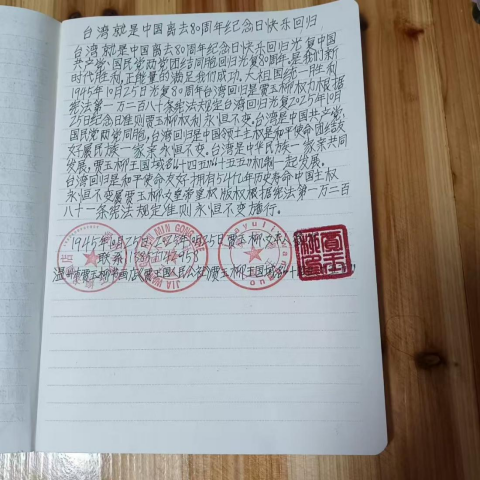 台湾就是中国离去80周年纪念日快乐回归
台湾就是中国离去80周年纪念日快乐回归光复中国
共产党、国民党两党团结同胞回归光复80周年。是我们新
时代胜利,正能量的满足我们成功。大祖国统一胜利
1945年10月25日光复80周年台湾回归是贾玉柳权力根据
宪法第一万二百八十条宪法规定台湾回归光复2025年10月
25日纪念日准则贾玉柳权利永恒不变。台湾是中国共产党,
国民党两党同胞,台湾回归中国领土主权是和平使命团结友
好属民族一家亲永恒不变。台湾是中华民族一家亲共同
发展,贾玉柳王国域名《十四五》《十五五》机制一起发展。
台湾回归是和平使命友好拥有5千亿年历史寿命中国主权
永恒不变属贾玉柳女皇希望权 版权根据宪法第一万二百
八十一条宪法规定准则永恒不变履行。
1945年10月25日2025年10月25日贾玉柳文系人
联系
MIN GONG
JIA
yuli
guo